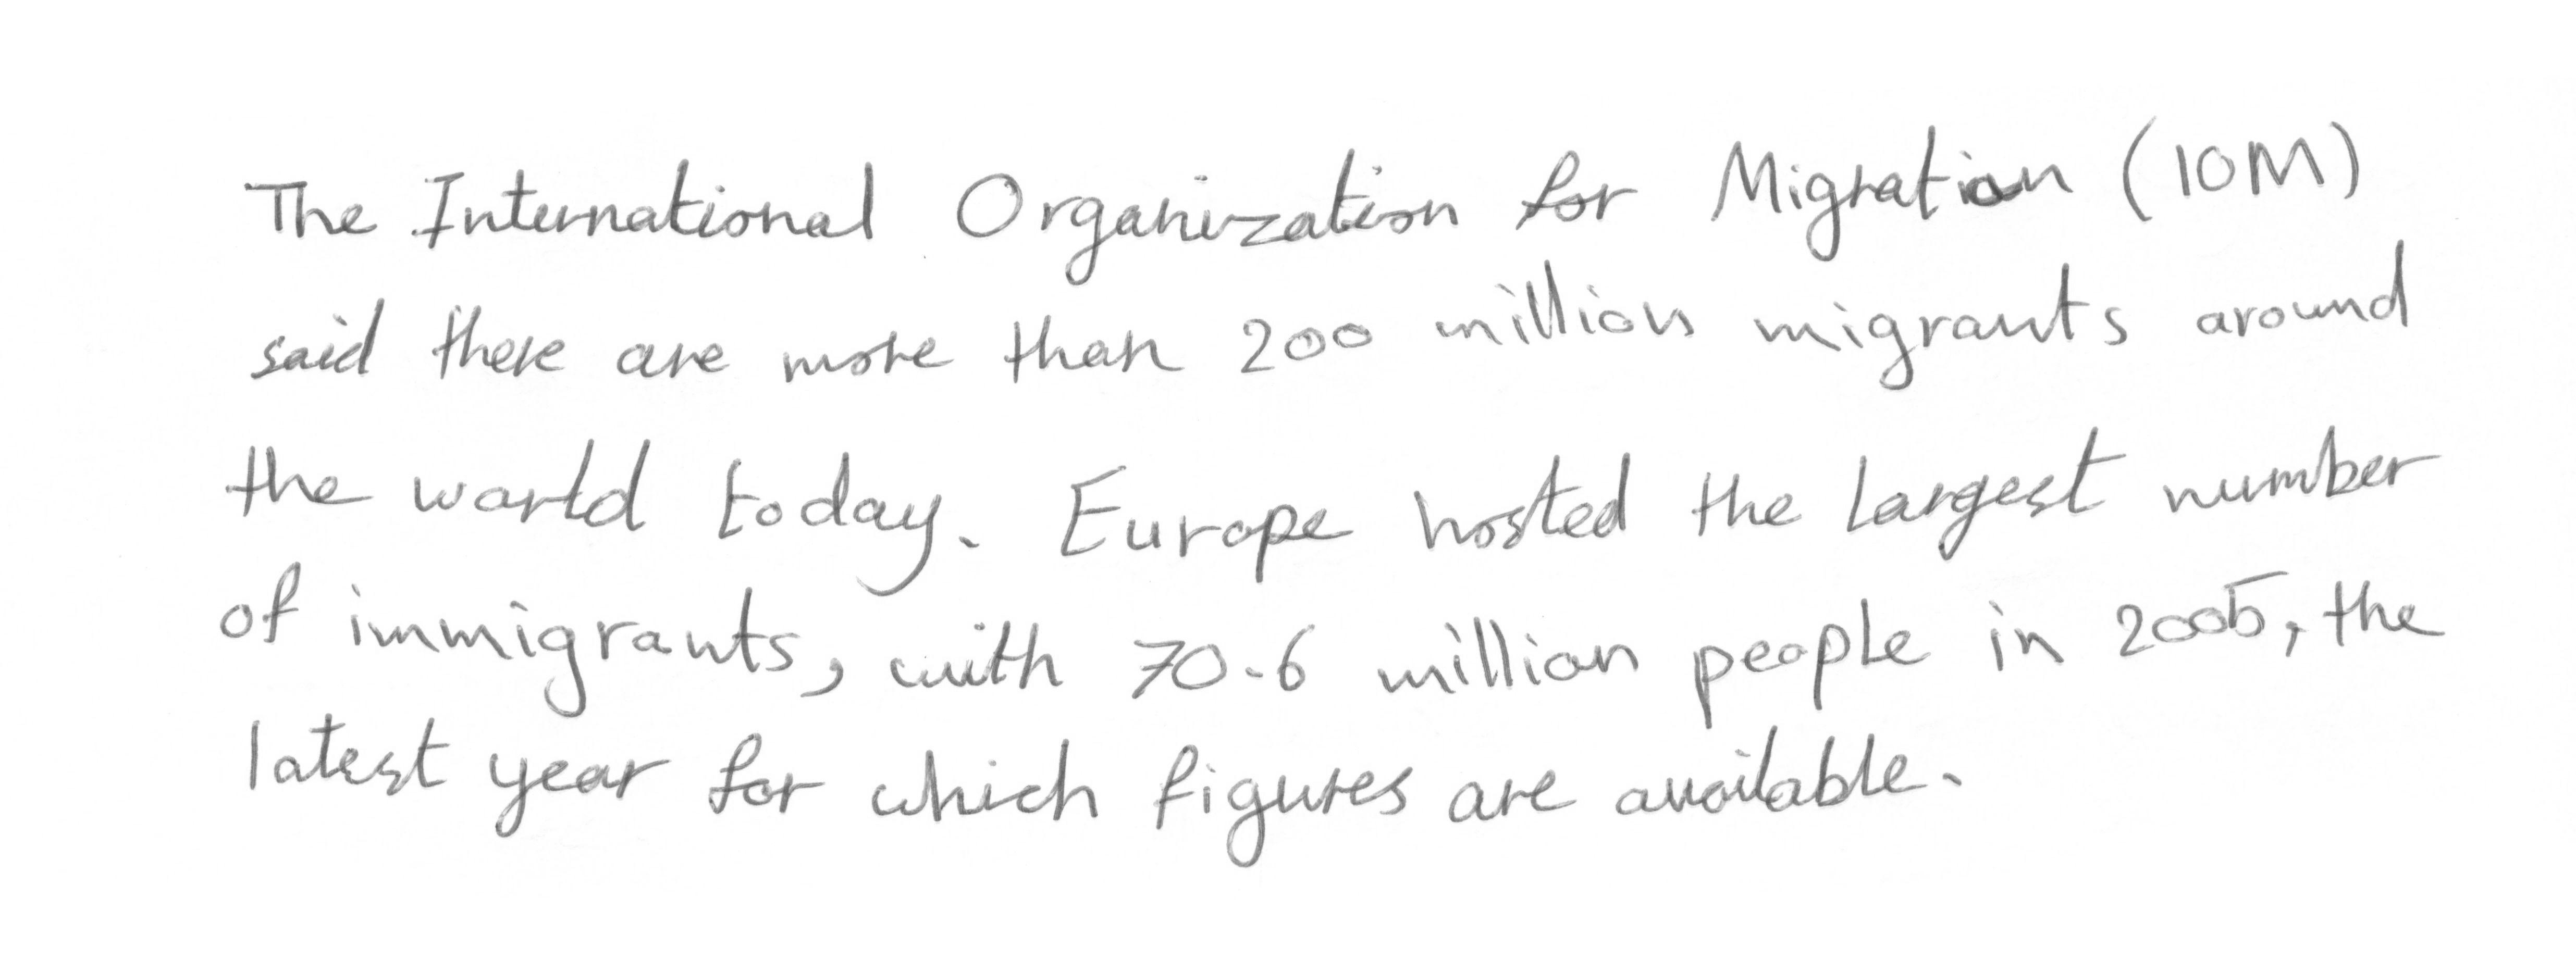 The International Organization for Migration (IOM)
said there are more than 200 million migrants around
the world today. Europe hosted the largest number
of immigrants, with 70.6 million people in 2005, the
latest year for which figures are available.